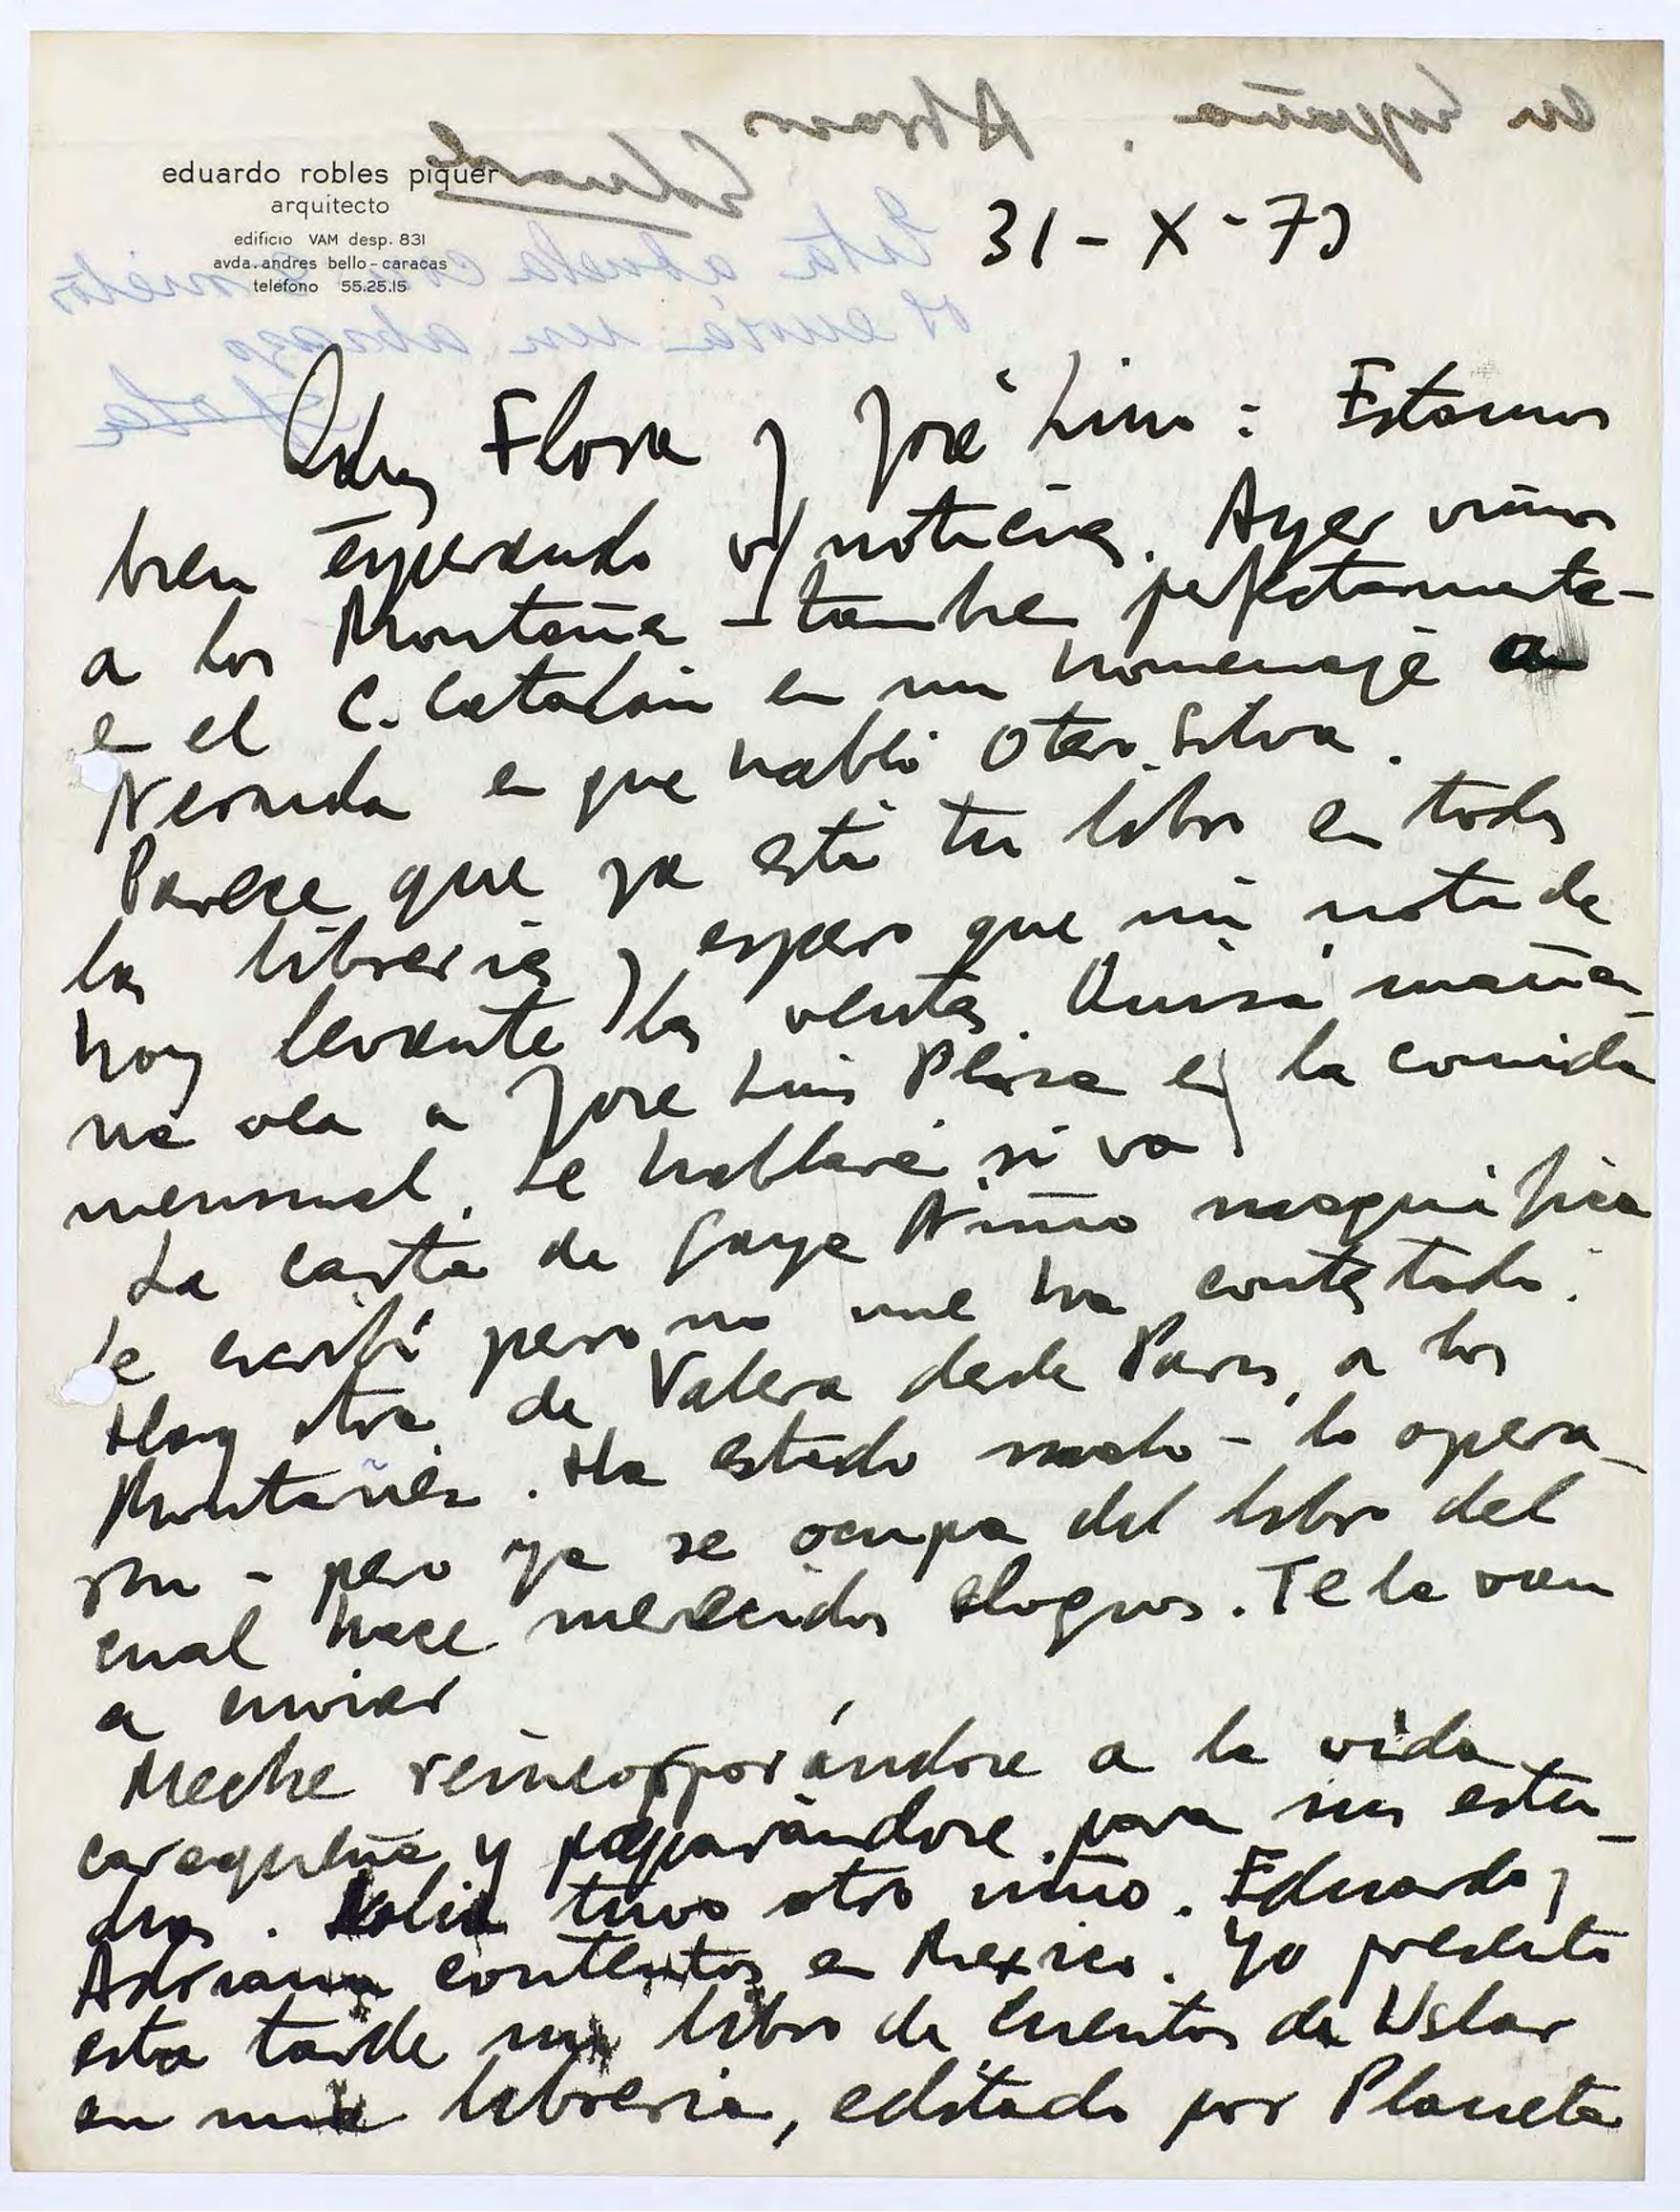 eduardo robles piquer
arquitecto
edificio VAM desp. 831
avda. andres bello - caracas
teléfono 55.25.15
31 - X - 73
Qdos Flora y José Luis : Estamos
bien esperando v/ noticias. Ayer vimos
a los Montañes - tambien perfectamente -
en el C. Catalán en un homenaje a
Neruda en que habló Otero Silva.
Parece que ya está tu libro en todas
las librerias y espero que mi nota de
hoy levante las ventas. Quisá maña-
na vea a José Luis Plaza en la comida
mensual. Le hablaré si va
La carta de Gaya Nuño magnífica
Le escribí pero no me ha contestado.
Hay otra de Valera desde Paris, a los
Montañés. Ha estado malo - lo opera-
ron - pero ya se ocupa del libro del
cual hace merecidos elogios. Te la van
a enviar
Meche reincorporándose a la vida
caraqueña y preparándose para sus estu-
dios. tuvo otro niño. Eduardo y
Adriana contentos en Mexico. Yo presento
esta tarde un libro de cuentos de Uslar
en una libreria, editado por Planeta
en España. Abrazos
Eduardo
Esta abuela con nietos
os envía un abrazo